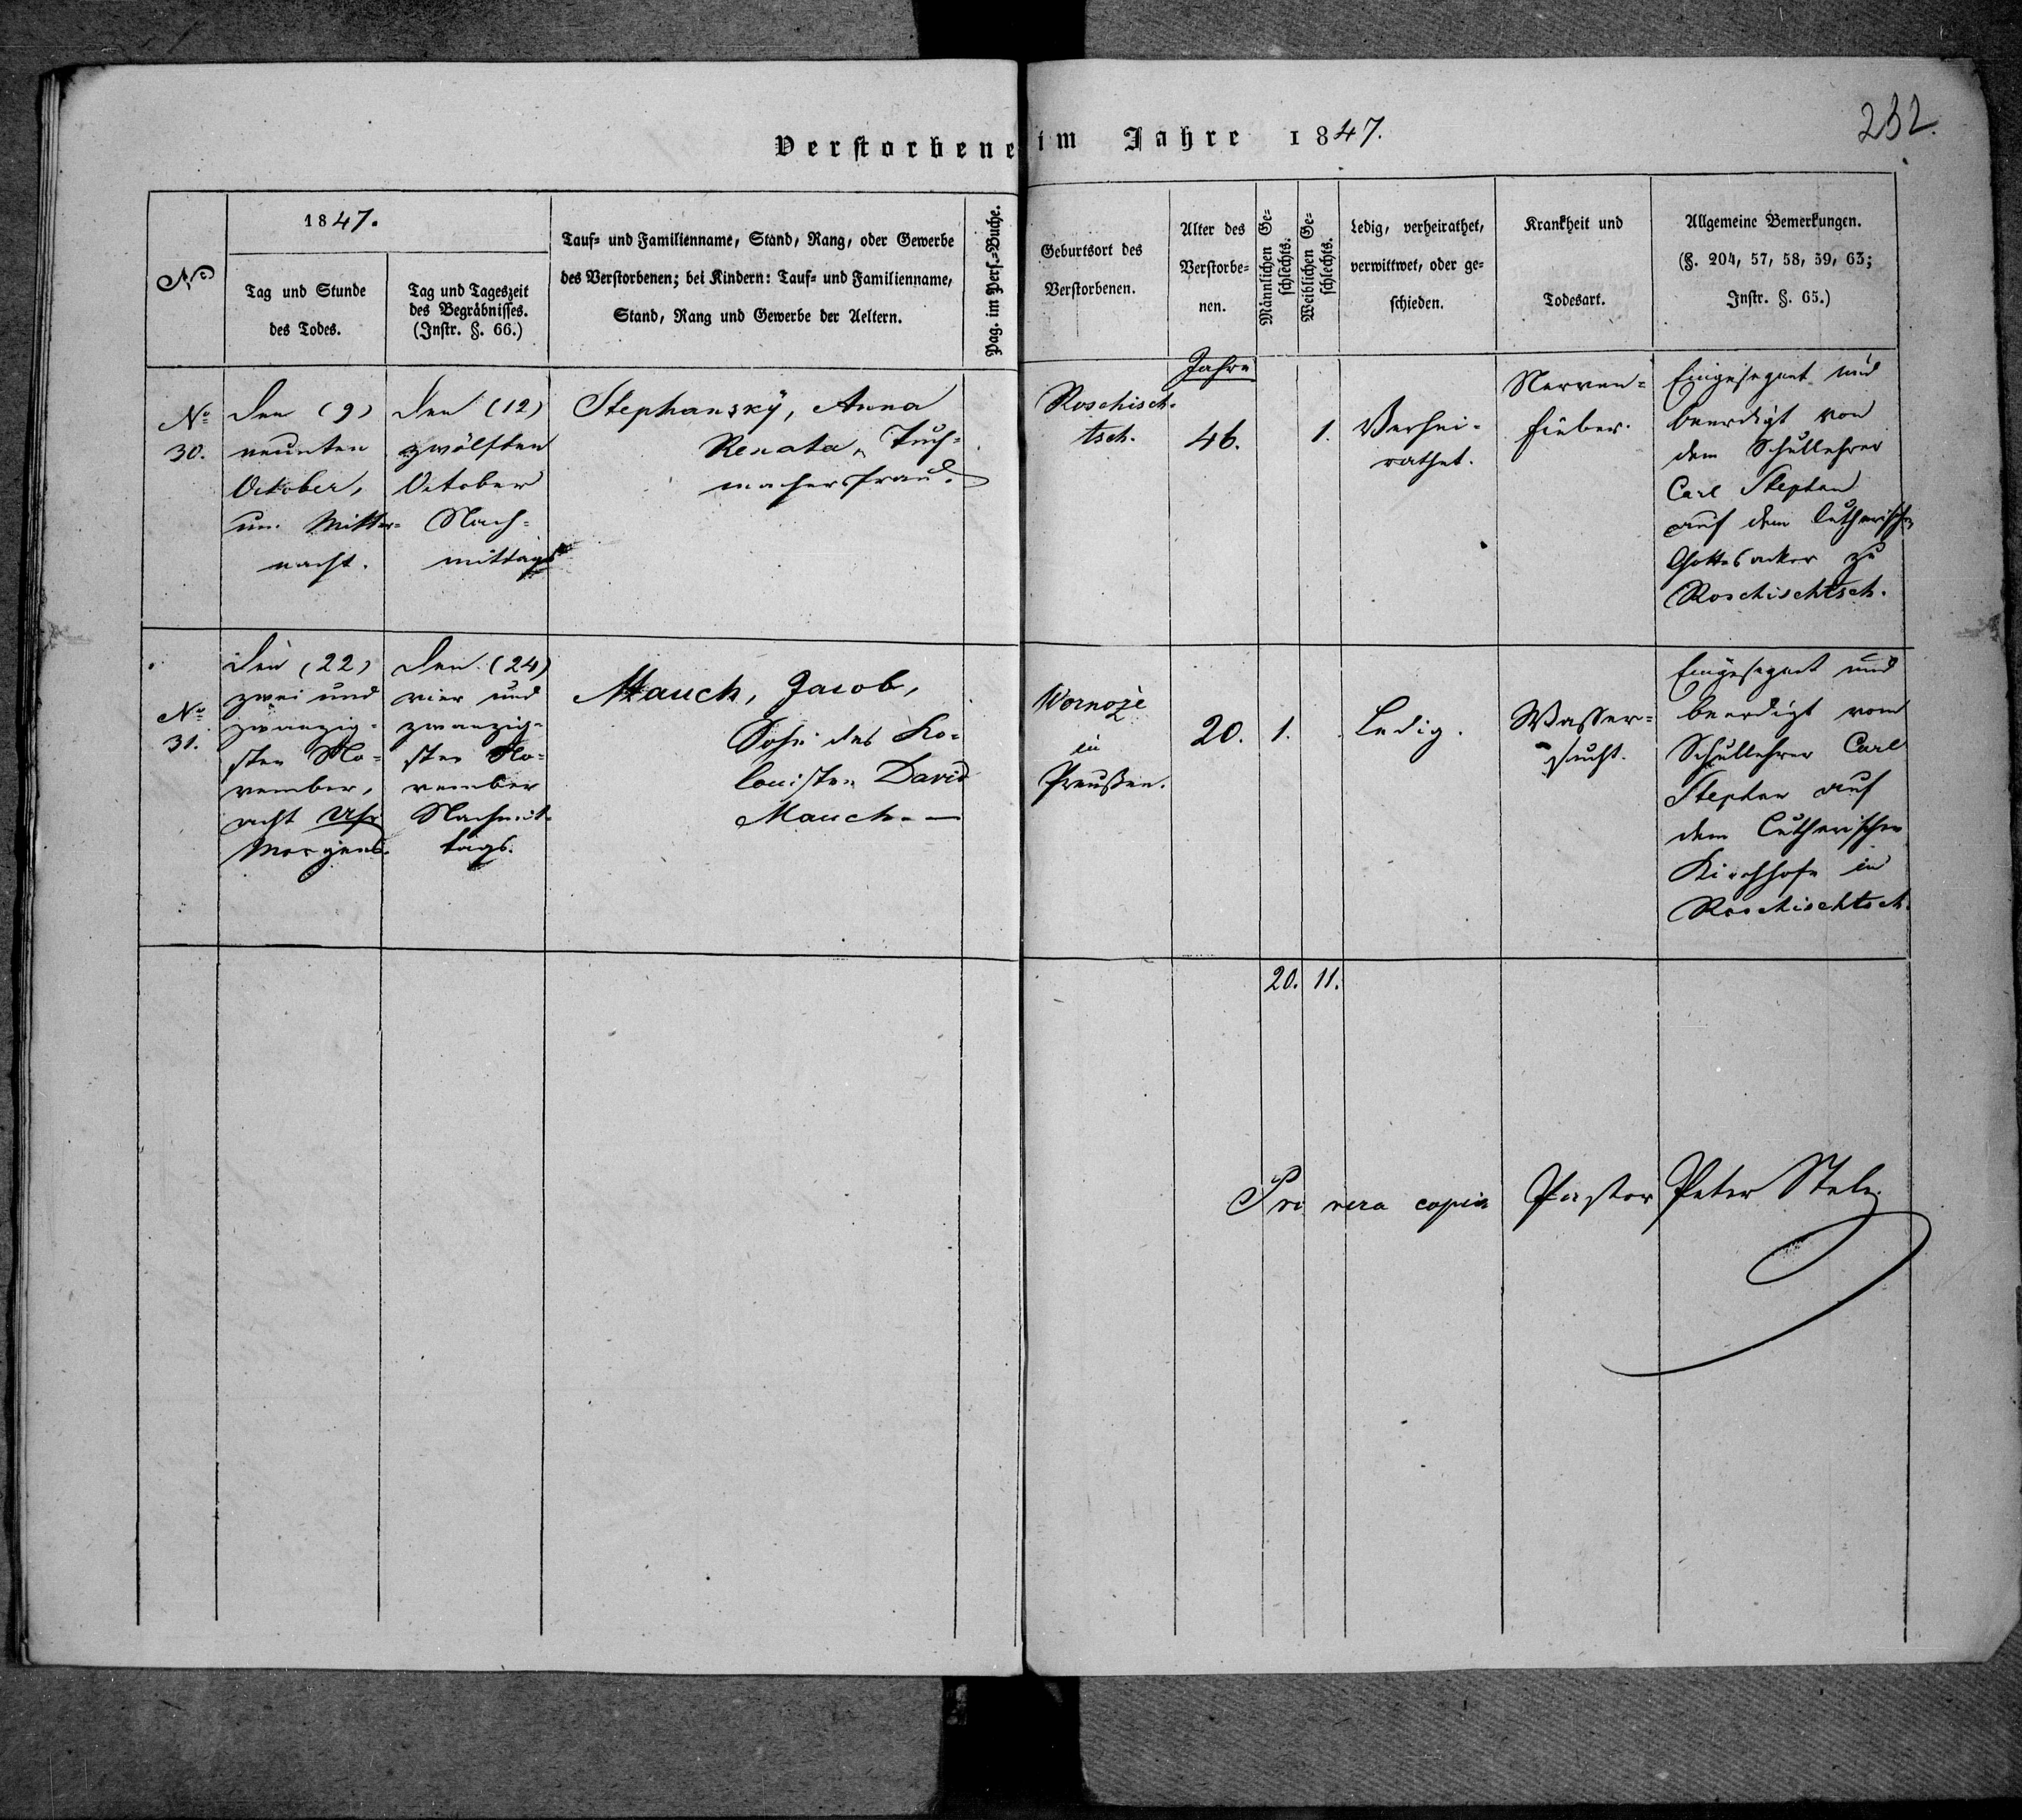 232.
Verstorbene im Jahre 1847.
№
1847.
Tag und Stunde
des Todes.
Tag und Tageszeit
des Begräbnisses.
(Instr. §. 66.)
Tauf- und Familienname, Stand, Rang, oder Gewerbe
des Verstorbenen; bei Kindern: Tauf- und Familienname,
Stand, Rang und Gewerbe der Aeltern.
Pag. im Pers.-Buche.
Geburtsort des
Verstorbenen.
Alter des
Verstorbe-
nen.
Männlichen Ge-
schlechts.
Weiblichen Ge-
schlechts.
Ledig, verheirathet,
verwittwet, oder ge-
schieden.
Krankheit und
Todesart.
Allgemeine Bemerkungen.
(§. 204, 57, 58, 59, 63;
Instr. §. 65.)
№
30.
Den (9)
neunten
October,
um Mitter-
nacht.
Den (12)
zwölften
October
Nach-
mittags
Stephanský, Anna
Renata, Tuch-
machersfrau.
Roschisch-
tsch.
Jahre
46.
1.
Verhei-
rathet.
Nerven-
fieber.
Eingesegnet und
beerdigt von
dem Schullehrer
Carl Stephan
auf dem lutherischen
Gottesacker zu
Roschischtsch.
№
31.
Den (22)
zwei und
zwanzig-
sten No-
vember,
acht Uhr
Morgens.
Den (24)
vier und
zwanzig-
sten No-
vember
Nachmit-
tags.
Mauch, Jacob,
Sohn des Ko-
lonisten David
Mauch. —
Wornoże
in
Preußen.
20.
1.
Ledig.
Wasser-
sucht.
Eingesegnet und
beerdigt vom
Schullehrer Carl
Stephan auf
dem Lutherischen
Kirchhofe in
Roschischtsch.
20. 11.
Pro vera copia Pastor Peter